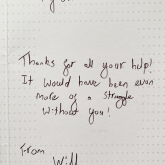 Thanks for all your help!
It would have been even
more of a struggle
without you!
From
Will